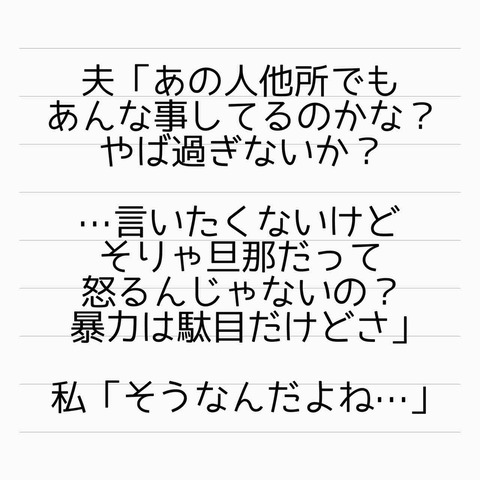 夫「あの人他所でも
あんな事してるのかな？
やば過ぎないか？
…言いたくないけど
そりゃ旦那だって
怒るんじゃないの？
暴力は駄目だけどさ」
私「そうなんだよね…」